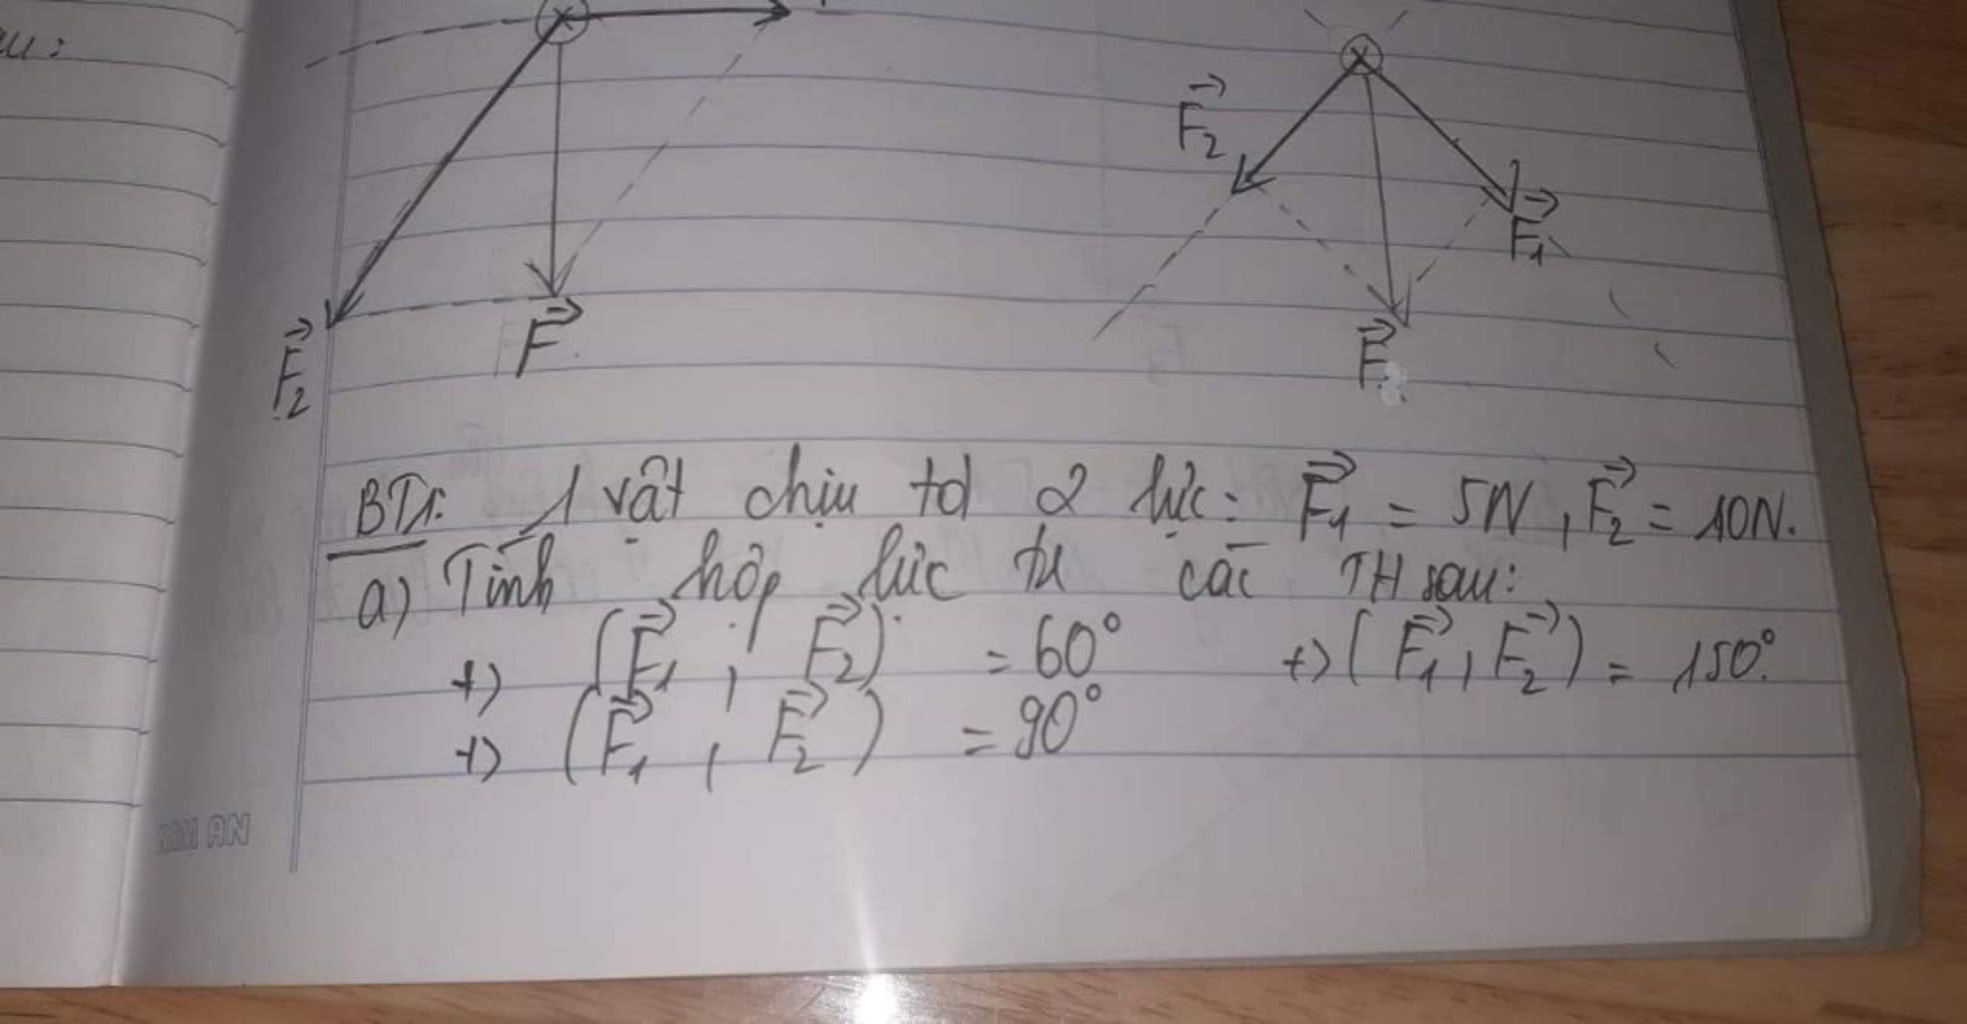 F₂
F₁
F₂
F
F
BT1: 1 vật chịu td 2 lực: F₁ = 5N, F₂ = 10N.
a) Tính hợp lực từ các TH sau:
+) (F₁, F₂) = 60° +) (F₁, F₂) = 150°
+) (F₁, F₂) = 90°
NAM AN